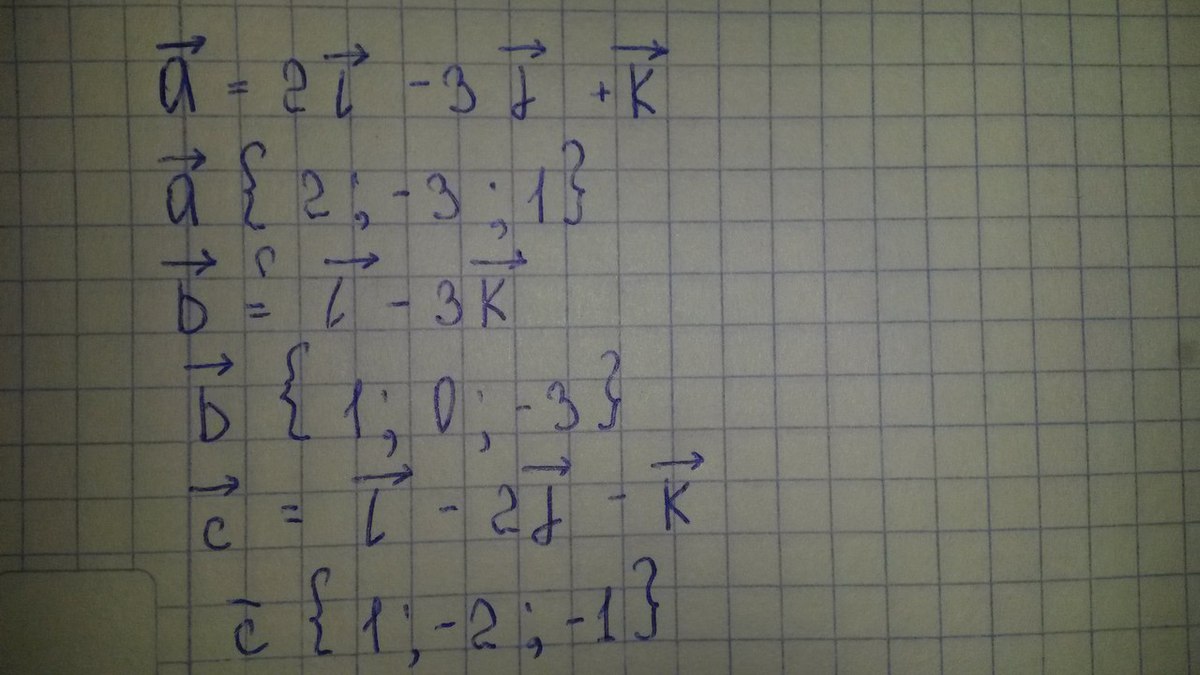 a⃗ = 2i⃗ - 3j⃗ + k⃗
a⃗ {2; -3; 1}
b⃗ = i⃗ - 3k⃗
b⃗ {1; 0; -3}
c⃗ = i⃗ - 2j⃗ - k⃗
c̅ {1; -2; -1}